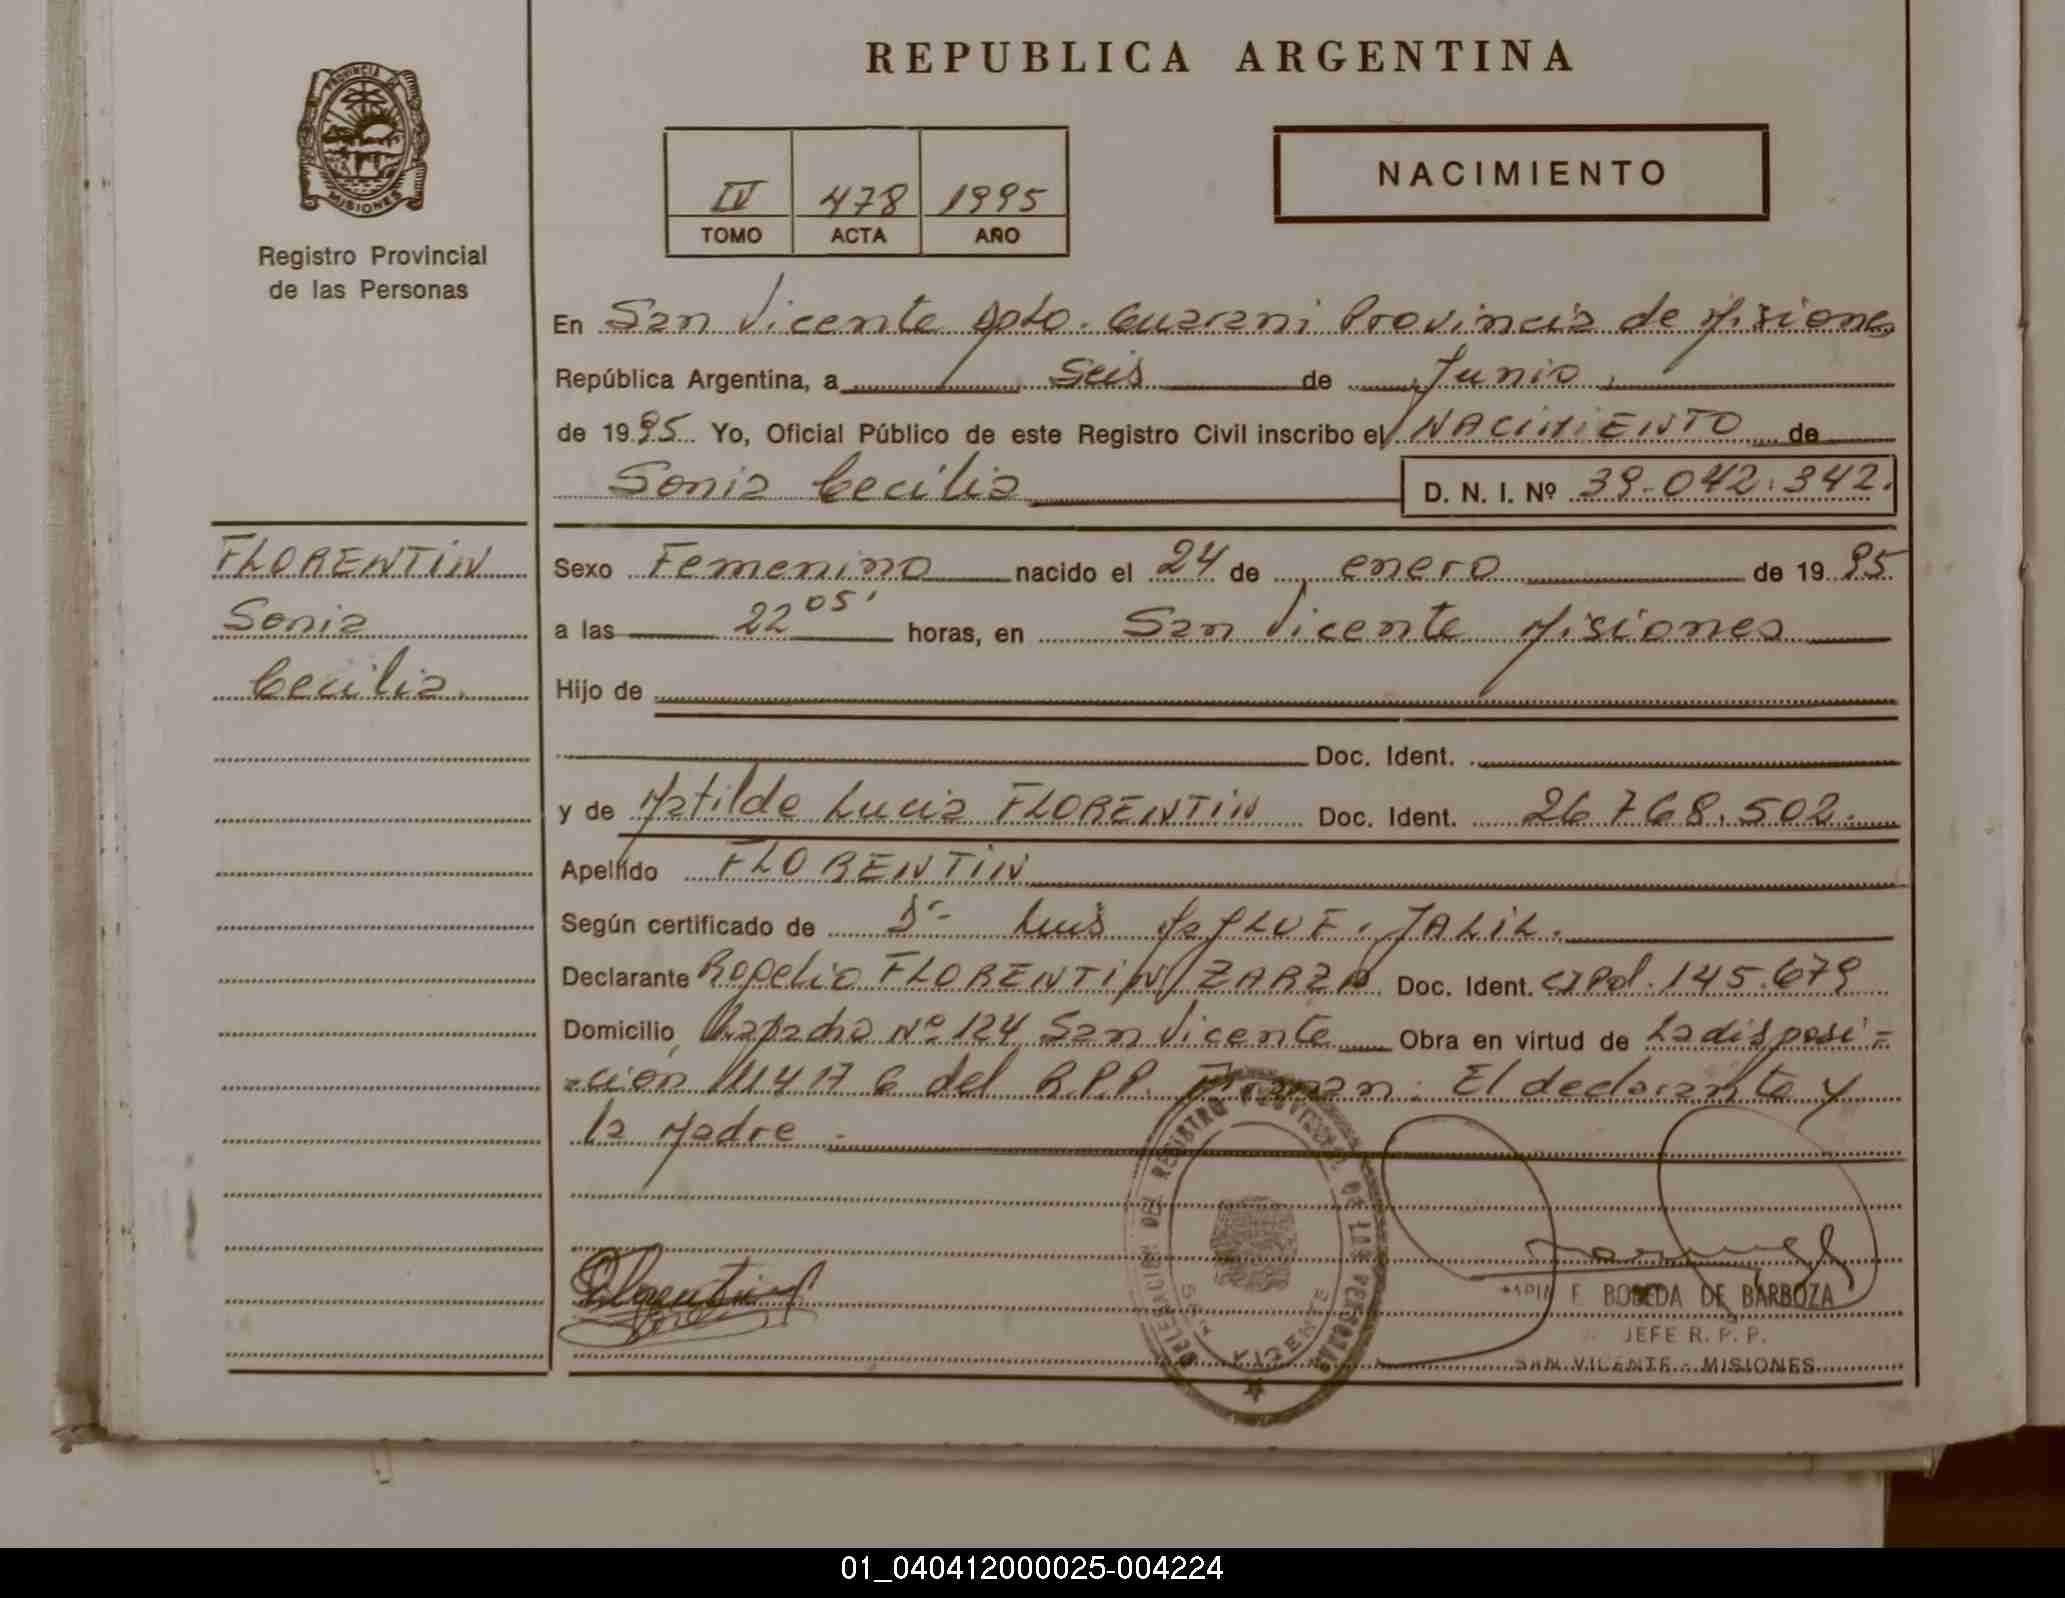 REPUBLICA ARGENTINA
PROVINCIA DE
MISIONES
Registro Provincial
de las Personas
IV 478 1995
TOMO ACTA AÑO
NACIMIENTO
En San Vicente Dpto. Guarani Provincia de Misiones
República Argentina, a Seis de Junio
de 1995 Yo, Oficial Público de este Registro Civil inscribo el NACIMIENTO de
Sonia Cecilia D. N. I. Nº 39.042.342.
FLORENTIN
Sonia
Cecilia.
Sexo Femenino nacido el 24 de enero de 1995
a las 22 05' horas, en San Vicente Misiones
Hijo de
Doc. Ident.
y de Matilde Lucia FLORENTIN Doc. Ident. 26.768.502.
Apellido FLORENTIN
Según certificado de Dr- Luis JALIL.
Declarante Rogelio FLORENTIN ZARZA Doc. Ident. 145.679
Domicilio Lapacho Nº 124 San Vicente Obra en virtud de La disposi=
=ción del R.P.P. Firman: El declarante y
la Madre.-
DEL REGISTRO PROVINCIAL DE LAS PERSONAS
SAN VICENTE
F. BOBEDA DE BARBOZA
JEFE R. P. P.
SAN VICENTE - MISIONES
01_040412000025-004224